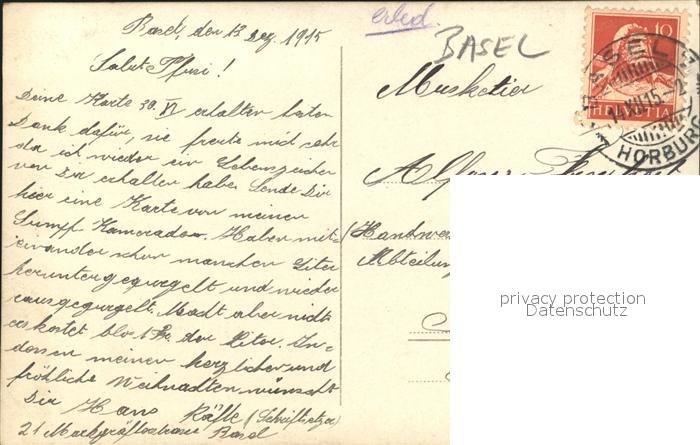 Basel, den 13 Dez. 1915
Salut Pfusi!
Deine Karte 30. VI erhalten besten
Dank dafür, sie freute mich sehr
da ich wieder ein Lebenszeichen
von Dir erhalten habe. Sende Dir
hier eine Karte von meinen
Sumpf Kameraden. Haben mit-
einander schon manchen Liter
heruntergegurgelt und wieder
rausgegurgelt. Macht aber nicht
es kostet blos 1 Fr. der Liter. In-
dessen meinen herzlichen und
fröhliche Weihnachten wünscht
Dir Hans Räfle (Schriftsetzer)
21 Markgräflerstrasse Basel
erled.
BASEL
Musketier
(Handwer
Abteilung
10
HELVETIA
BASEL
14.XII.15
HORBURG
privacy protection
Datenschutz